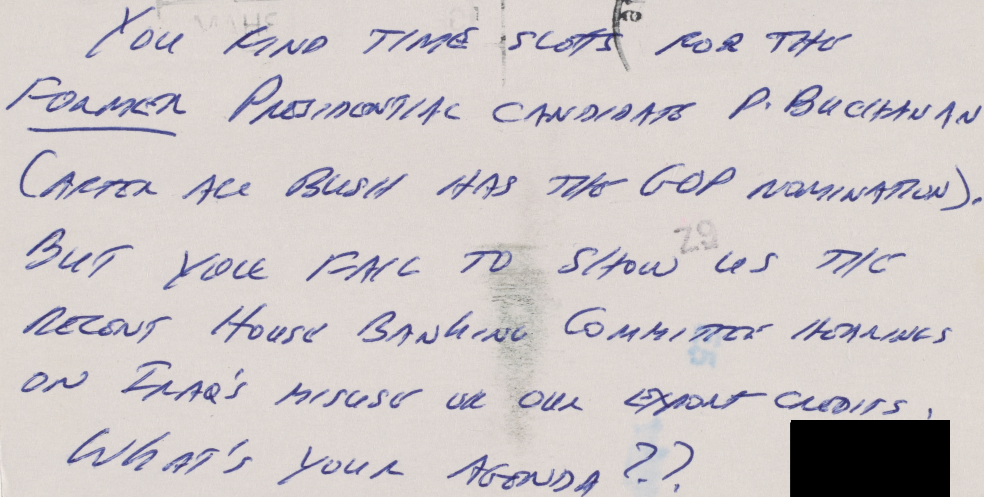 YOU FIND TIME SLOTS FOR THE
FORMER PRESIDENTIAL CANDIDATE P. BUCHANAN
(AFTER ALL BUSH HAS THE GOP NOMINATION).
BUT YOU FAIL TO SHOW US THE
RECENT HOUSE BANKING COMMITTEE HEARINGS
ON IRAQ'S MISUSE OF OUR EXPORT CREDITS.
WHAT'S YOUR AGENDA??